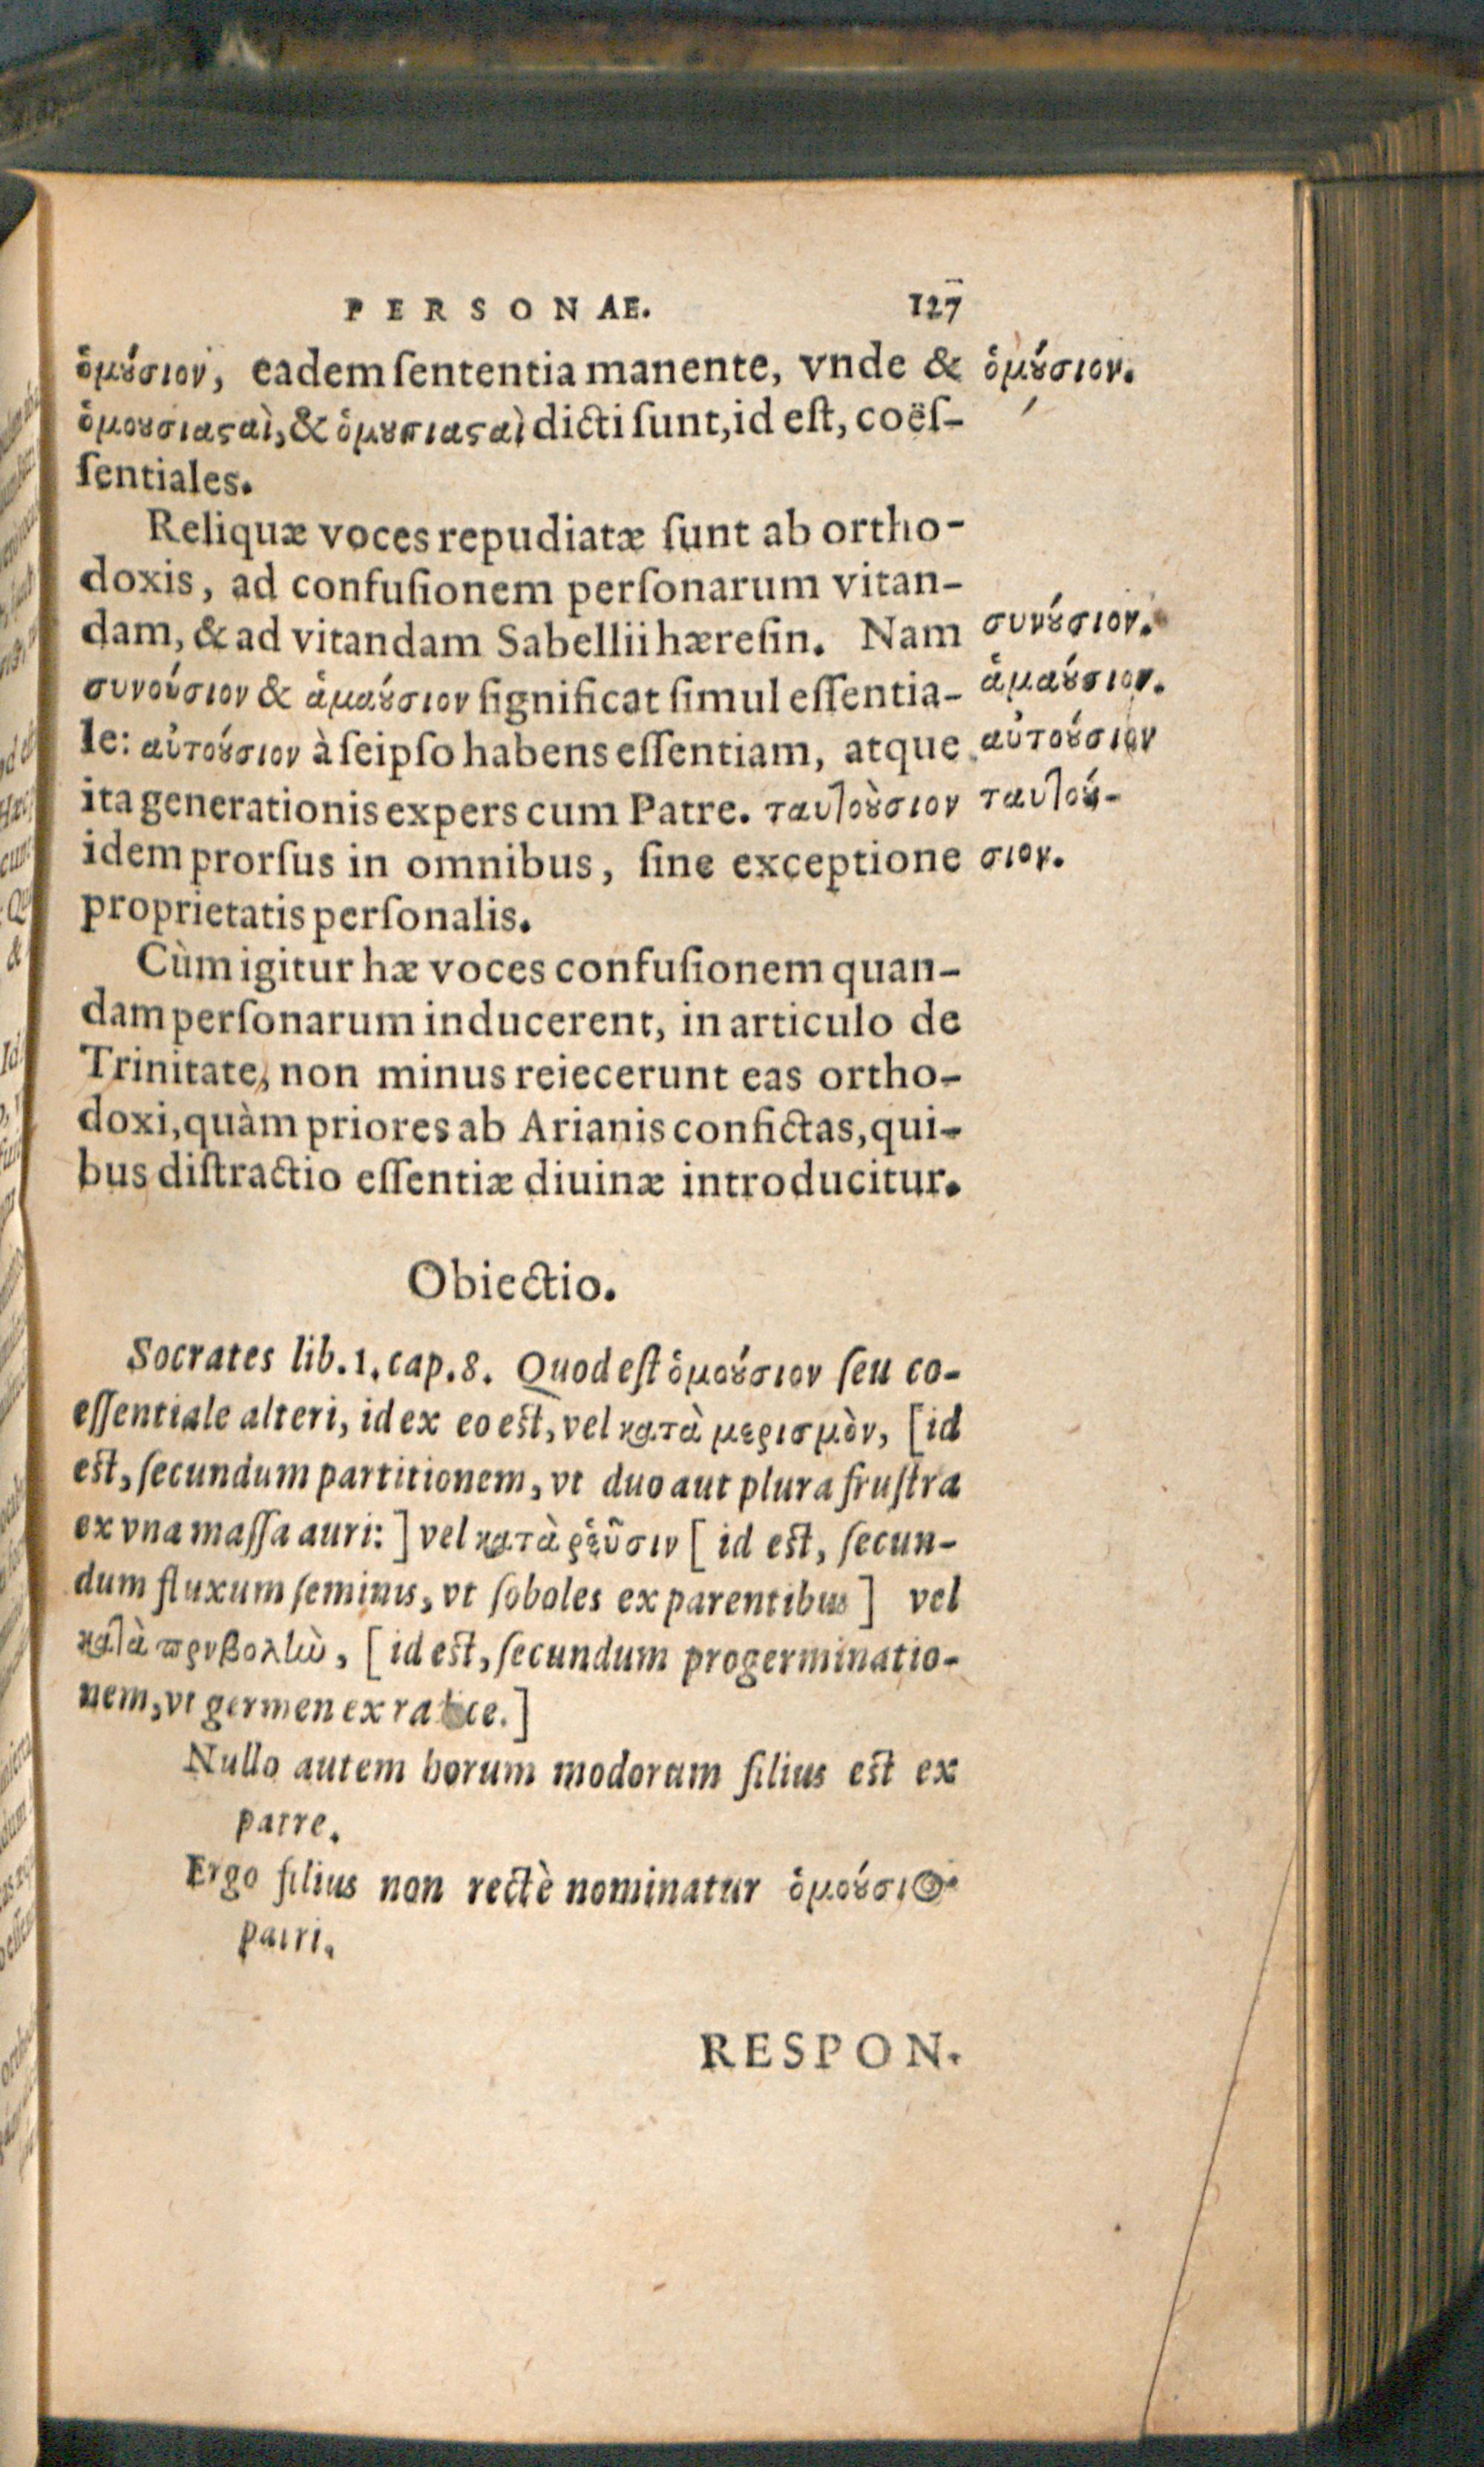 PERSONAE. 127
ὁμȣ́σιον, eadem ſententia manente, vnde &
ὁμοȣσιαςαὶ, & ὁμȣσιαςαὶ dicti ſunt, id eſt, coëſ-
ſentiales.
Reliquæ voces repudiatæ ſunt ab ortho-
doxis, ad confuſionem perſonarum vitan-
dam, & ad vitandam Sabellii hæreſin. Nam
συνούσιον & ἁμαȣ́σιον ſignificat ſimul eſſentia-
le: αὐτοȣ́σιον à ſeipſo habens eſſentiam, atque
ita generationis expers cum Patre. ταυτοȣ̀σιον
idem prorſus in omnibus, ſine exceptione
proprietatis perſonalis.
Cùm igitur hæ voces confuſionem quan-
dam perſonarum inducerent, in articulo de
Trinitate, non minus reiecerunt eas ortho-
doxi, quàm priores ab Arianis confictas, qui-
bus diſtractio eſſentiæ diuinæ introducitur.
ὁμȣ́σιον.
συνȣ́σιον.
ἁμαȣ́σιον.
αὐτοȣ́σιον
ταυτοȣ́-
σιον.
Obiectio.
Socrates lib. 1. cap. 8. Quod eſt ὁμοȣ́σιον ſeu co-
eſſentiale alteri, id ex eo eſt, vel κατὰ μερισμὸν, [id
eſt, ſecundum partitionem, vt duo aut plura fruſtra
ex vna maſſa auri:] vel κατὰ ῥεῦσιν [id eſt, ſecun-
dum fluxum ſeminis, vt ſoboles ex parentibus] vel
κατὰ προβολὴν, [id eſt, ſecundum progerminatio-
nem, vt germen ex radice.]
Nullo autem horum modorum filius eſt ex
patre.
Ergo filius non rectè nominatur ὁμοȣ́σιος
patri.
RESPON.